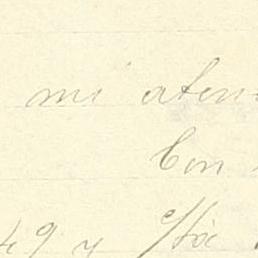 mi aten
Con
49 y